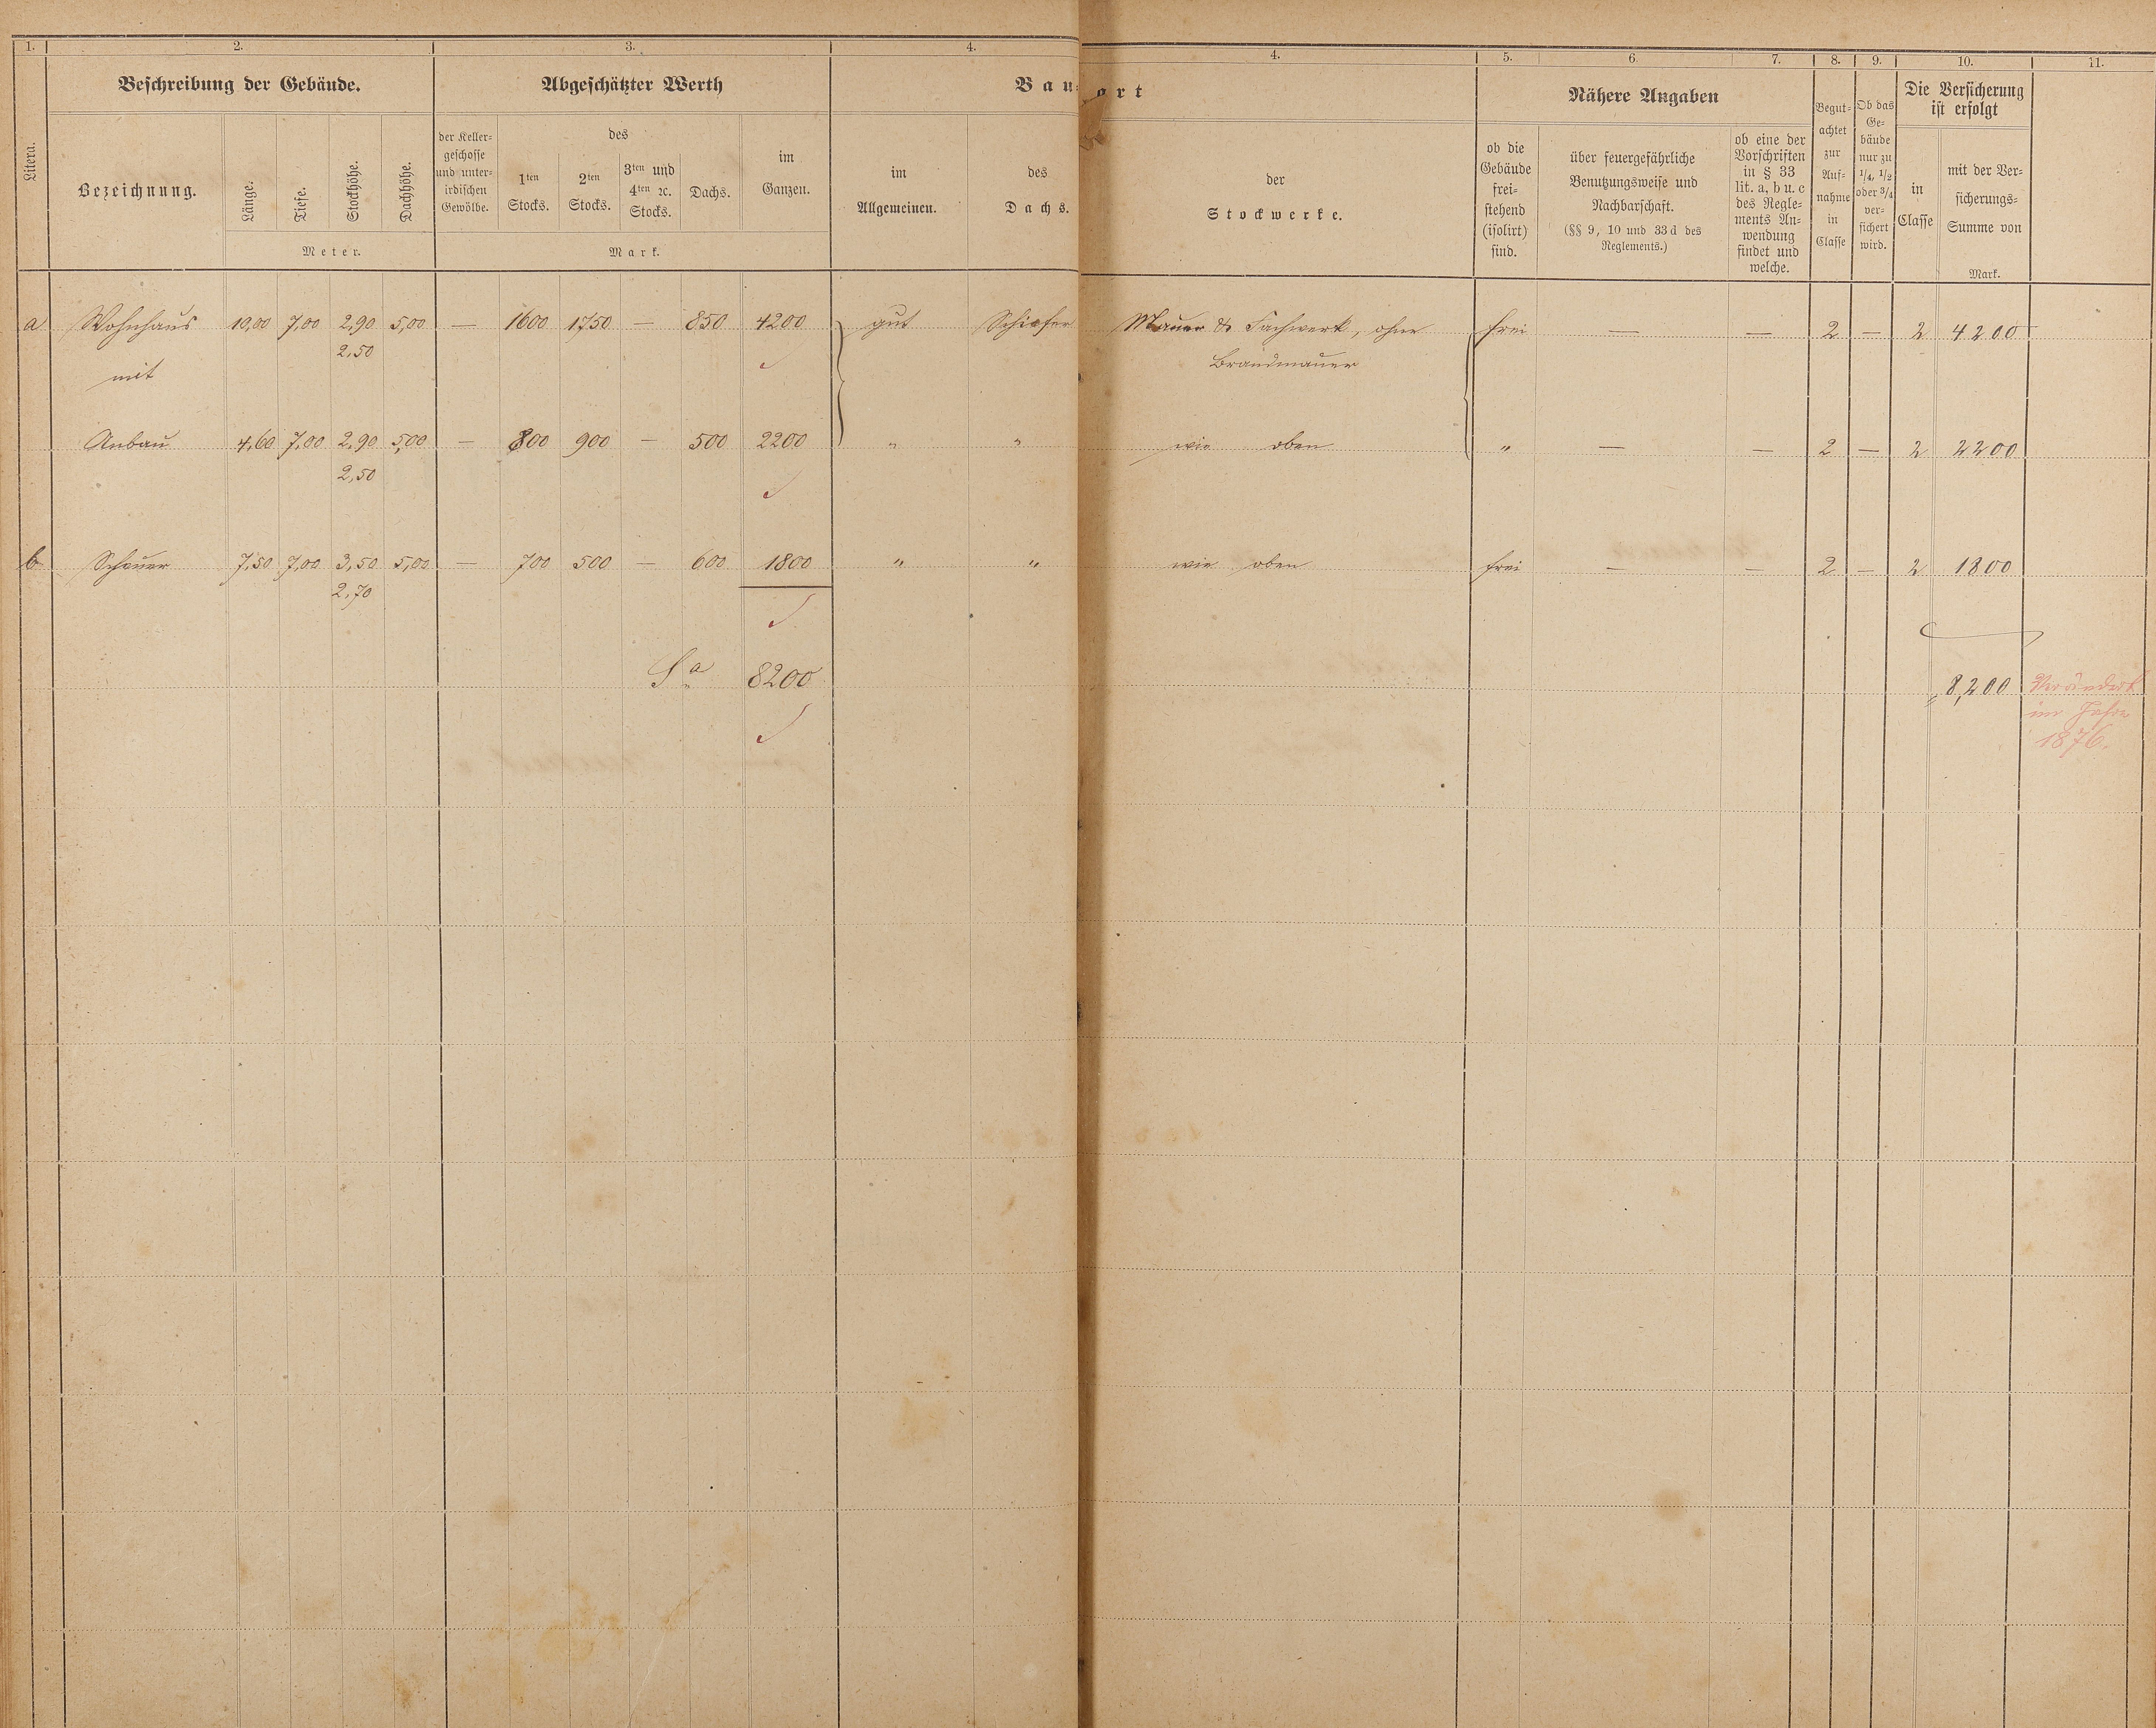 1. 2. 3. 4. 4. 5. 6. 7. 8. 9. 10. 11.
Beschreibung der Gebäude. Abgeschätzter Werth Bau- art Nähere Angaben Die Versicherung
ist erfolgt
Litera.
Bezeichnung.
Länge.
Tiefe.
Stockhöhe.
Dachhöhe.
Meter.
der Keller-
geschosse
und unter-
irdischen
Gewölbe.
des
1ten
Stocks.
2ten
Stocks.
3ten und
4ten ꝛc.
Stocks.
Dachs.
im
Ganzen.
Mark.
im
Allgemeinen.
des
Dachs.
der
Stockwerke.
ob die
Gebäude
frei-
stehend
(isolirt)
sind.
über feuergefährliche
Benutzungsweise und
Nachbarschaft.
(§§ 9, 10 und 33 d des
Reglements.)
ob eine der
Vorschriften
in § 33
lit. a, b u. c
des Regle-
ments An-
wendung
findet und
welche.
Begut-
achtet
zur
Auf-
nahme
in
Classe
Ob das
Ge-
bäude
nur zu
1/4, 1/2
oder 3/4
ver-
sichert
wird.
in
Classe
mit der Ver-
sicherungs-
Summe von
Mark.
a Wohnhaus 10,00 7,00 2,90 5,00 — 1600 1750 — 850 4200 gut Schiefer Mauer & Fachwerk, ohne frei — — 2 — 2 4200
2,50 Brandmauer
mit
Anbau 4,60 7,00 2,90 5,00 — 800 900 — 500 2200 " " wie oben " — — 2 — 2 2200
2,50
b Scheuer 7,50 7,00 3,50 5,00 — 700 500 — 600 1800 " " wie oben frei — — 2 — 2 1800
2,70
Sa 8200 8,200 Verändert
im Jahre
1876.